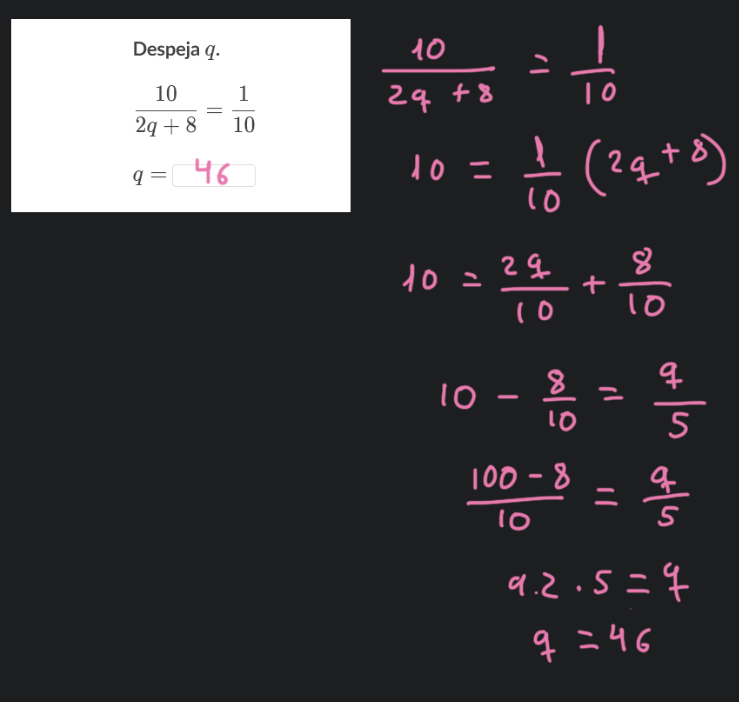 Despeja q.
10/(2q + 8) = 1/10
q = 46
10/(2q + 8) = 1/10
10 = 1/10 (2q + 8)
10 = 2q/10 + 8/10
10 - 8/10 = q/5
(100 - 8)/10 = q/5
9.2 . 5 = q
q = 46